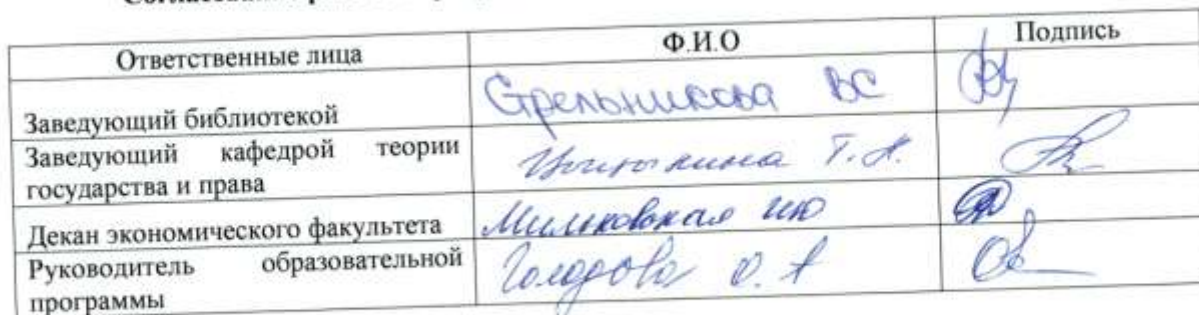 Ответственные лица Ф.И.О Подпись
Заведующий библиотекой Стрельникова ВС
Заведующий кафедрой теории
государства и права Т.Н.
Декан экономического факультета Милюковская ИЮ
Руководитель образовательной
программы О.А